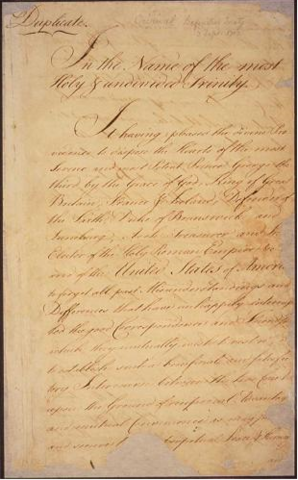 Duplicate.
In the Name of the most
Holy & undivided Trinity.
It having pleased the divine Pro
vidence to dispose the Hearts of the most
Serene and most Potent Prince George the
third, by the Grace of God, King of Great
Britain, France & Ireland, Defender of
the Faith, Duke of Brunswick and
Luneburg, Arch Treasurer and
Elector of the Holy Roman Empire
of the United States of Ameri
to forget all past Misunderstandings and
Differences that have unhappily interrup
ted the good Correspondence and Friendsh
which they mutually wish to restore
to establish such a beneficial and satisfac
tory Intercourse between the two Count
upon the Ground of reciprocal Advantag
and mutual Convenience as may
and secure perpetual Peace & Harm